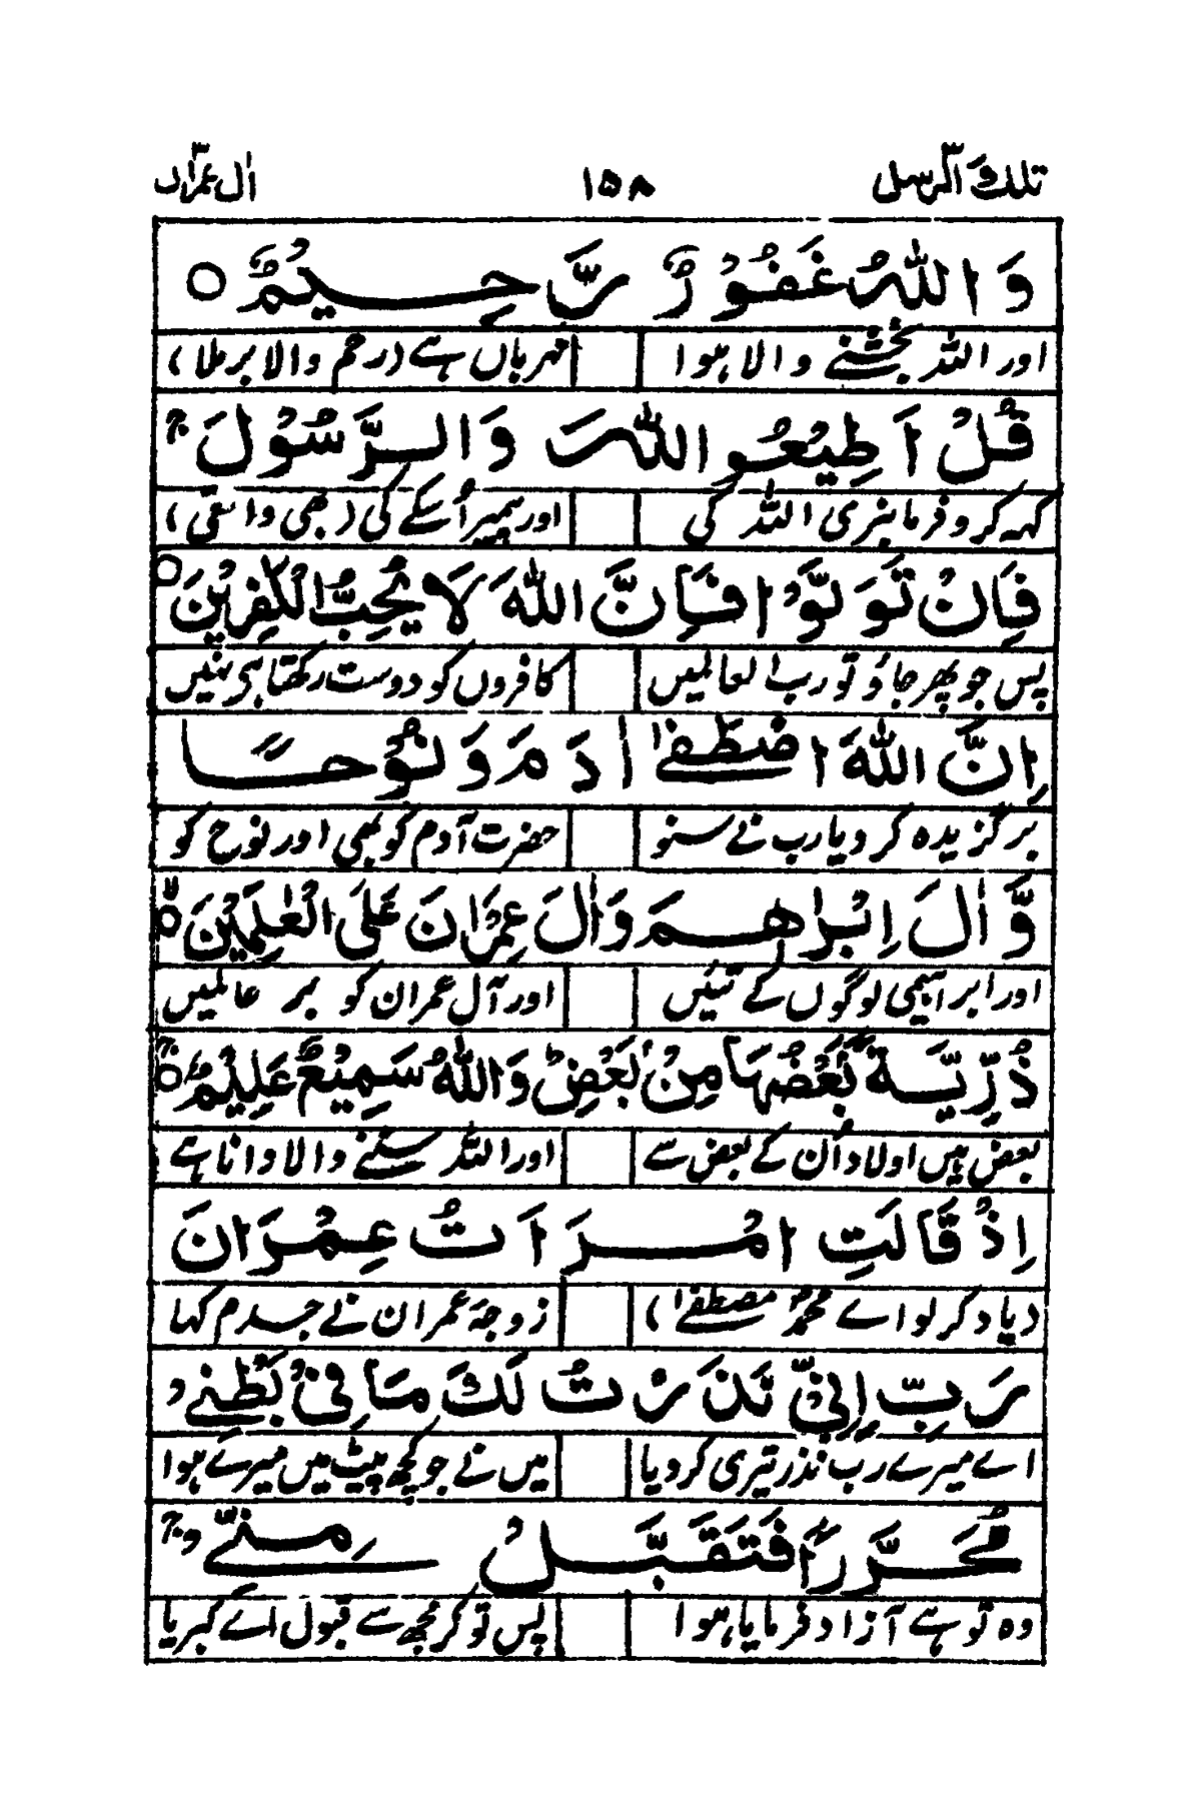 تلك الرسل ٣ ١٥٨ اٰل عمرٰن ٣
وَاللّٰهُ غَفُوْرٌ رَّحِيْمٌ ○
اور اللہ بخشنے والا ہوا مہرباں ہے (رحم والا برملا)
قُلْ اَطِيْعُوا اللّٰهَ وَالرَّسُوْلَ ج
کہہ کرو فرمانبری اللہ کی اور پیمبر اُسکے کی (بھی واقعی)
فَاِنْ تَوَلَّوْا فَاِنَّ اللّٰهَ لَا يُحِبُّ الْكٰفِرِيْنَ ○
پس جو پھر جاؤ تو رب العالمیں کافروں کو دوست رکھتا ہی نہیں
اِنَّ اللّٰهَ اصْطَفٰٓى اٰدَمَ وَنُوْحًا
برگزیدہ کر دیا رب نے سنو حضرت آدم کو بھی اور نوح کو
وَّاٰلَ اِبْرٰهِيْمَ وَاٰلَ عِمْرٰنَ عَلَى الْعٰلَمِيْنَ ○
اور ابراہیمی لوگوں کے تئیں اور آل عمران کو بر عالمیں
ذُرِّيَّةًۢ بَعْضُهَا مِنْۢ بَعْضٍ وَاللّٰهُ سَمِيْعٌ عَلِيْمٌ ○ ج
بعض ہیں اولاد اُن کے بعض سے اور اللہ سننے والا دانا ہے
اِذْ قَالَتِ امْرَاَتُ عِمْرَانَ
(یاد کر لو اے محمدؐ مصطفےٰ) زوجۂ عمران نے جسدم کہا
رَبِّ اِنِّيْ نَذَرْتُ لَكَ مَا فِيْ بَطْنِيْ
اے میرے رب نذر تیری کر دیا میں نے جو کچھ پیٹ میں میرے ہوا
مُحَرَّرًا فَتَقَبَّلْ مِنِّيْ ج
وہ تو ہے آزاد فرمایا ہوا پس تو کر مجھ سے قبول اے کبریا